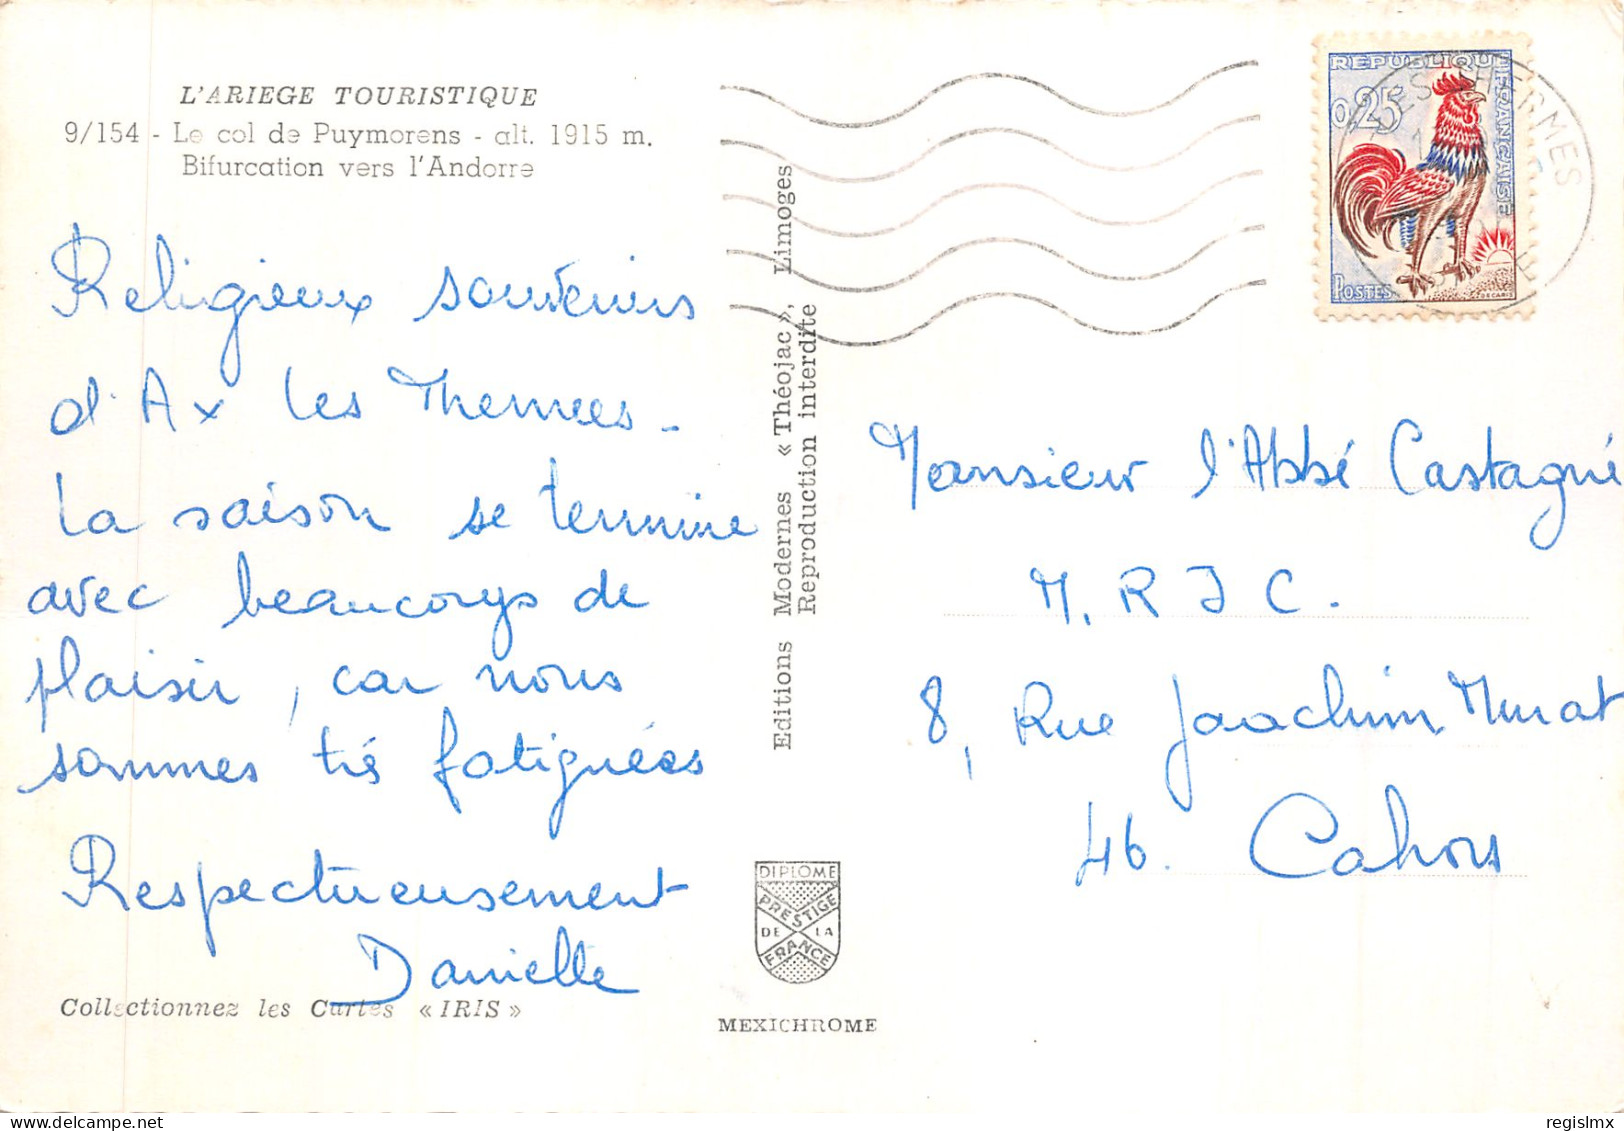 L'ARIEGE TOURISTIQUE
9/154 - Le col de Puymorens - alt. 1915 m.
Bifurcation vers l'Andorre
Religieux souvenirs
d'Ax les Thermes -
La saison se termine
avec beaucoup de
plaisir, car nous
sommes très fatiguées
Respectueusement
Danielle
Collectionnez les Cartes « IRIS »
Editions Modernes « Théojac », Limoges
Reproduction interdite
DIPLOME
PRESTIGE
DE LA
FRANCE
MEXICHROME
REPUBLIQUE
FRANÇAISE
0,25
POSTES
DECARIS
LES THERMES
Monsieur l'Abbé Castagné
M. R J C.
8, Rue Joachim Murat
46. Cahors
regislmx
delcampe.net